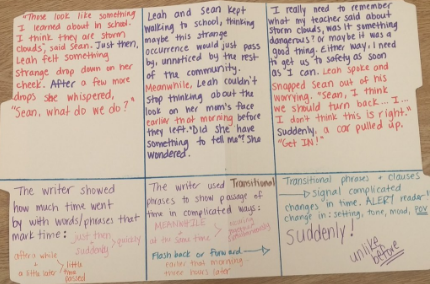 "Those look like something
I learned about in school.
I think they are storm
clouds", said Sean. Just then,
Leah felt something
strange drop down on her
cheek. After a few more
drops she whispered,
"Sean, what do we do?"
Leah and Sean kept
walking to school, thinking
maybe this strange
occurrence would just pass
by, unnoticed by the rest
of the community.
Meanwhile, Leah couldn't
stop thinking about the
look on her mom's face
earlier that morning before
they left. "Did she have
something to tell me? She
wondered.
I really need to remember
what my teacher said about
storm clouds, was it something
dangerous? or maybe it was a
good thing. Either way, I need
to get us to safety as soon
as I can. Leah spoke and
snapped Sean out of his
worrying. "Sean, I think
we should turn back... I...
I don't think this is right."
Suddenly, a car pulled up.
"Get IN!"
The writer showed
how much time went
by with words/phrases that
mark time:
just then
suddenly
quickly
after a while
a little later
little
time
passed
The writer used Transitional
phrases to show passage of
time in complicated ways:
MEANWHILE
at the same time
Flash back or Forward
earlier that morning
three hours later
Transitional phrases + clauses
signal complicated
changes in time. ALERT reader
change in: setting, tone, mood, POV
Suddenly!
unlike
before